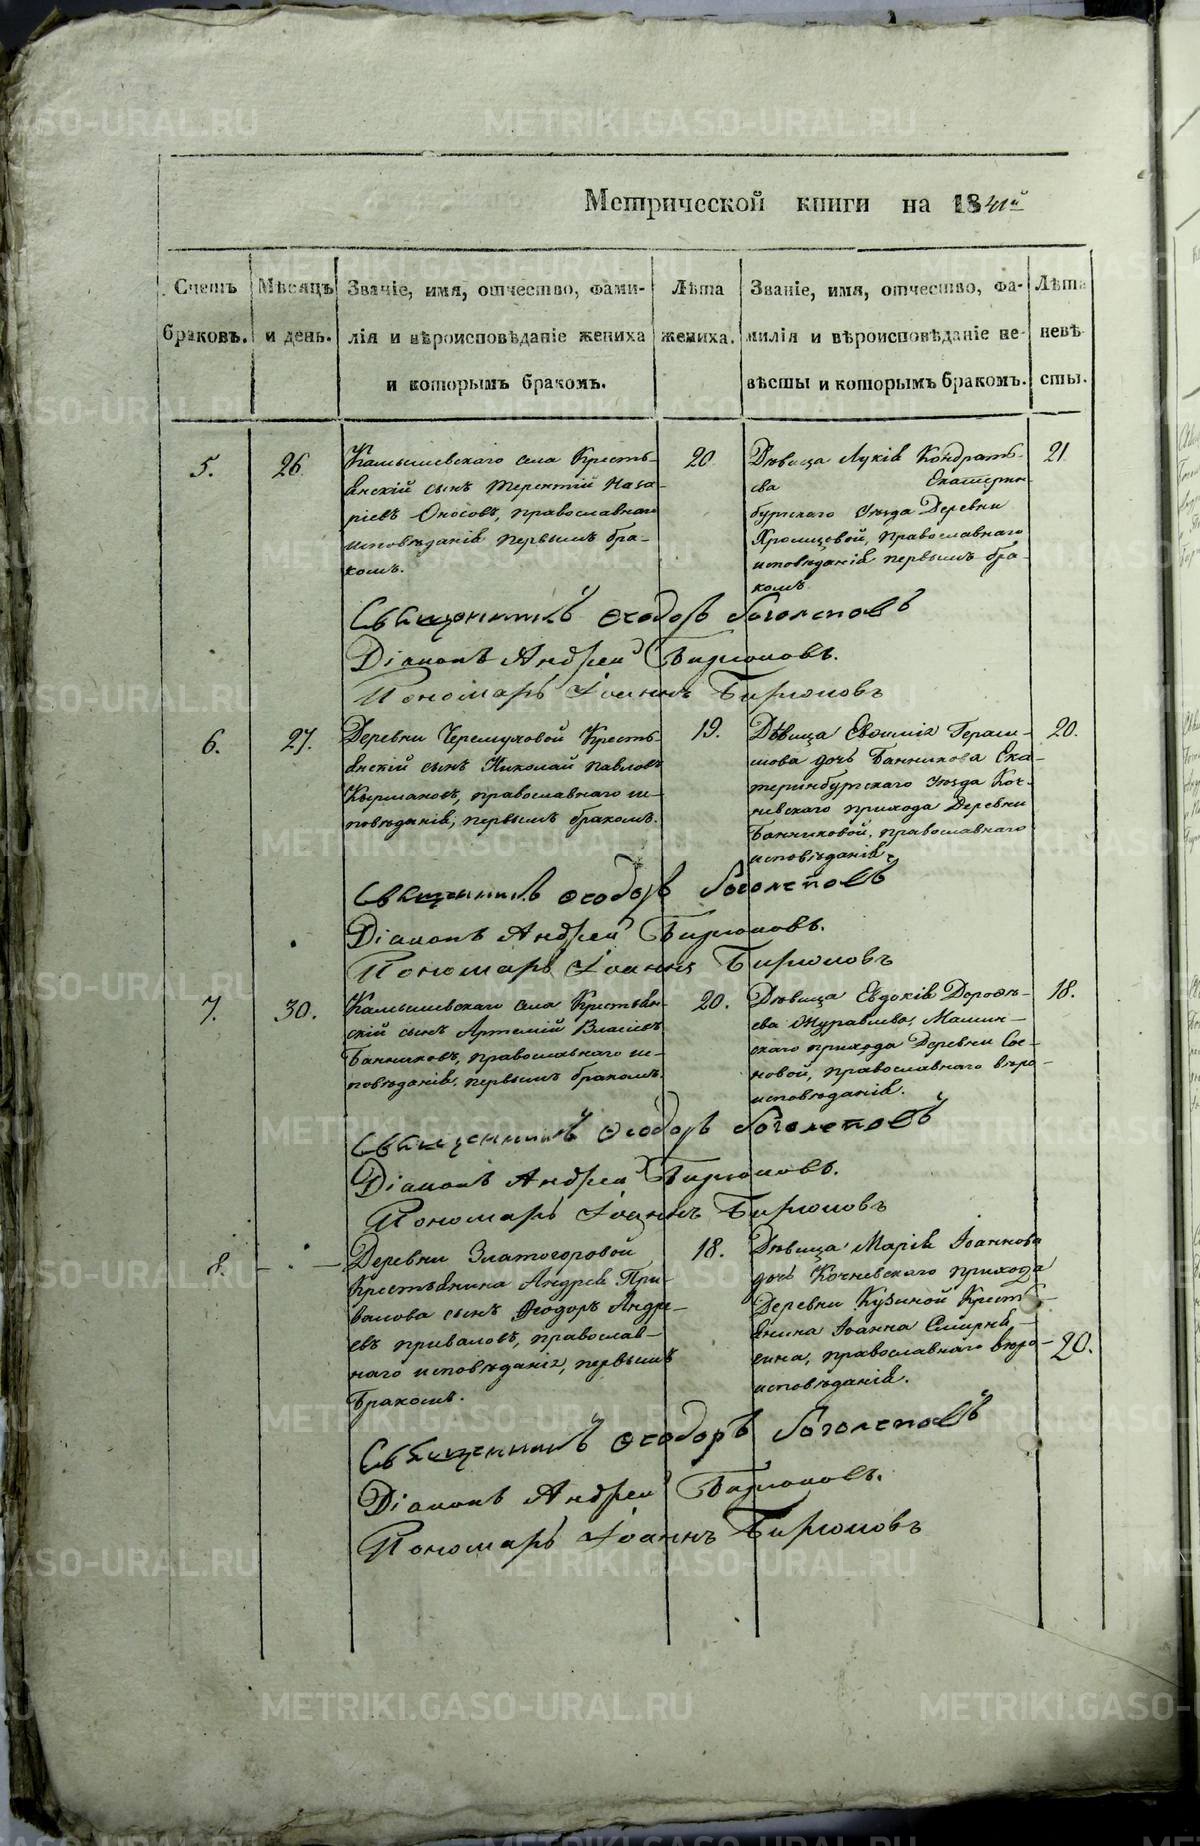 Метрической книги на 1841й
Счетъ браковъ.
Мѣсяцъ и день.
Званіе, имя, отчество, фами-
лія и вѣроисповѣданіе жениха
и которымъ бракомъ.
Лѣта жениха.
Званіе, имя, отчество, фа-
милія и вѣроисповѣданіе не-
вѣсты и которымъ бракомъ.
Лѣта невѣ-
сты.
5.
26.
Камышевскаго села Кресть-
янскій сынъ Терентій Наза-
ріевъ Оносовъ, православнаго
исповѣданія первымъ бра-
комъ.
20.
Дѣвица Лукія Кондрать-
ева Екатерин
бургскаго уѣзда Деревни
Хромцовой, православнаго
исповѣданія первымъ бра-
комъ
21.
Священникъ Ѳеодоръ Боголеповъ
Діаконъ Андрей Бирюковъ.
Пономарь Іоаннъ Бирюковъ
6.
27.
Деревни Черемуховой Кресть-
янскій сынъ Николай Павловъ
православнаго ис-
повѣданія, первымъ бракомъ.
19.
Дѣвица Евѳимія Гераси-
мова дочь Банникова Ека-
теринбургскаго уѣзда Коч-
невскаго прихода Деревни
Банниковой, православнаго
исповѣданія.
20.
Священникъ Ѳеодоръ Боголеповъ
Діаконъ Андрей Бирюковъ.
Пономарь Іоаннъ Бирюковъ
7.
30.
Камышевскаго села Крестьян-
скій сынъ Артемій Власіевъ
Банниковъ, православнаго ис-
повѣданія, первымъ бракомъ.
20.
Дѣвица Евдокія Дороѳѣ-
ева Журавлева, Мамин-
скаго прихода Деревни Сос-
новой, православнаго вѣро
исповѣданія.
18.
Священникъ Ѳеодоръ Боголеповъ
Діаконъ Андрей Бирюковъ.
Пономарь Іоаннъ Бирюковъ
8.
Деревни Златогоровой
Крестьянина Андрея При-
валова сынъ Ѳеодоръ Андре-
евъ Приваловъ, православ-
наго исповѣданія, первымъ
бракомъ.
18.
Дѣвица Марія Іоаннова
дочь Кочневскаго прихода
Деревни Кузиной Кресть-
янина Іоанна
православнаго вѣро-
исповѣданія.
20.
Священникъ Ѳеодоръ Боголеповъ
Діаконъ Андрей Бирюковъ.
Пономарь Іоаннъ Бирюковъ
METRIKI.GASO-URAL.RU